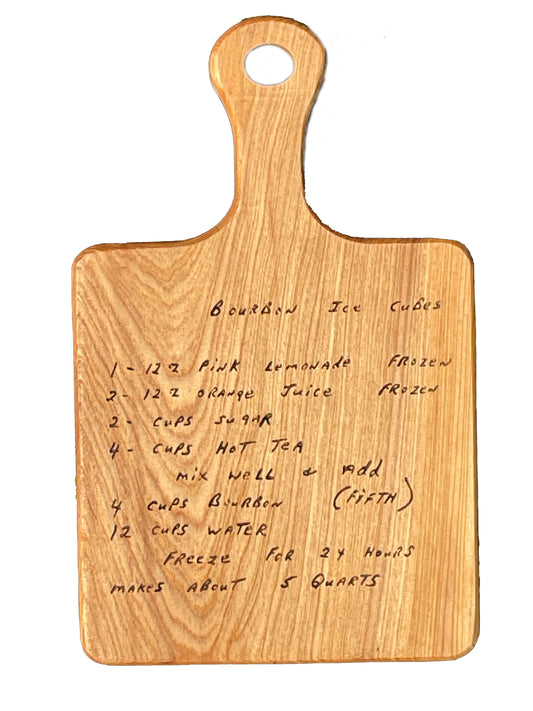 Bourbon Ice Cubes
1 - 12 z Pink Lemonade Frozen
2 - 12 z Orange Juice Frozen
2 - Cups Sugar
4 - Cups Hot Tea
Mix Well & Add
4 Cups Bourbon (Fifth)
12 Cups Water
Freeze For 24 Hours
Makes About 5 Quarts